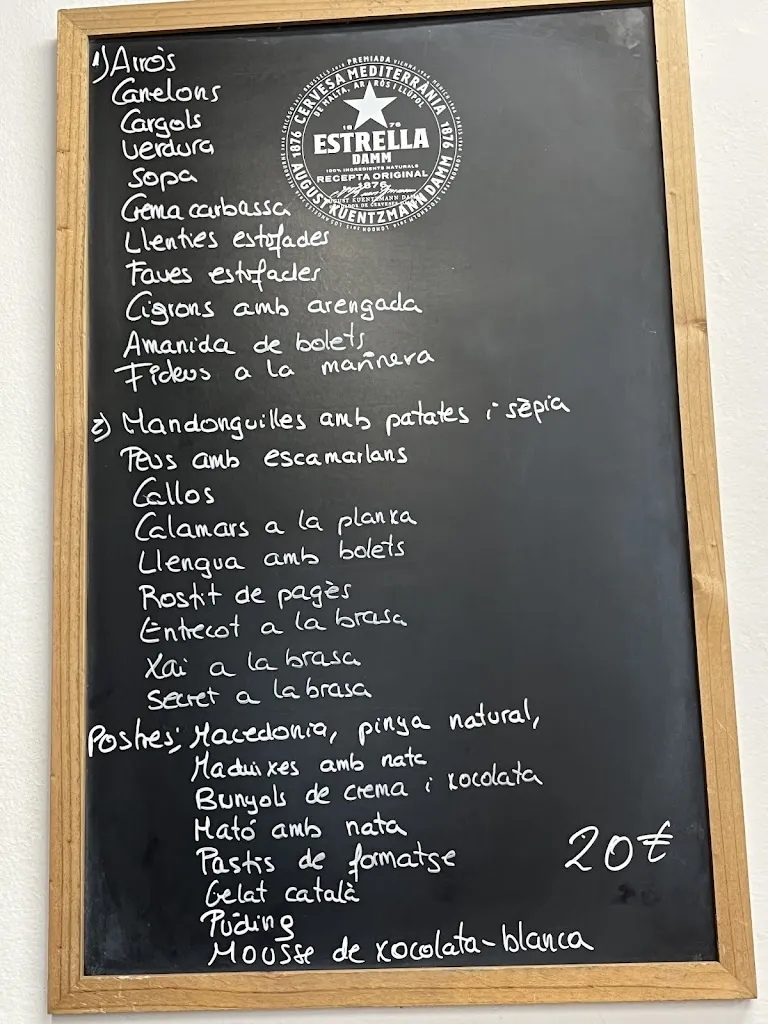 1) Arròs
Canelons
Cargols
Verdura
Sopa
Crema carbassa
Llenties estofades
Faves estofades
Cigrons amb arengada
Amanida de bolets
Fideus a la marinera
2) Mandonguilles amb patates i sèpia
Peus amb escamarlans
Callos
Calamars a la planxa
Llengua amb bolets
Rostit de pagès
Entrecot a la brasa
Xai a la brasa
Secret a la brasa
Postres; Macedonia, pinya natural,
Maduixes amb nata
Bunyols de crema i xocolata
Mató amb nata
Pastis de formatge
20€
Gelat català
Púding
Mousse de xocolata-blanca
CERVESA MEDITERRÀNIA
DE MALTA, ARRÒS I LLÚPOL
1876
1876
18 76
ESTRELLA
DAMM
100% INGREDIENTS NATURALS
RECEPTA ORIGINAL
1876
AUGUST KUENTZMANN DAMM